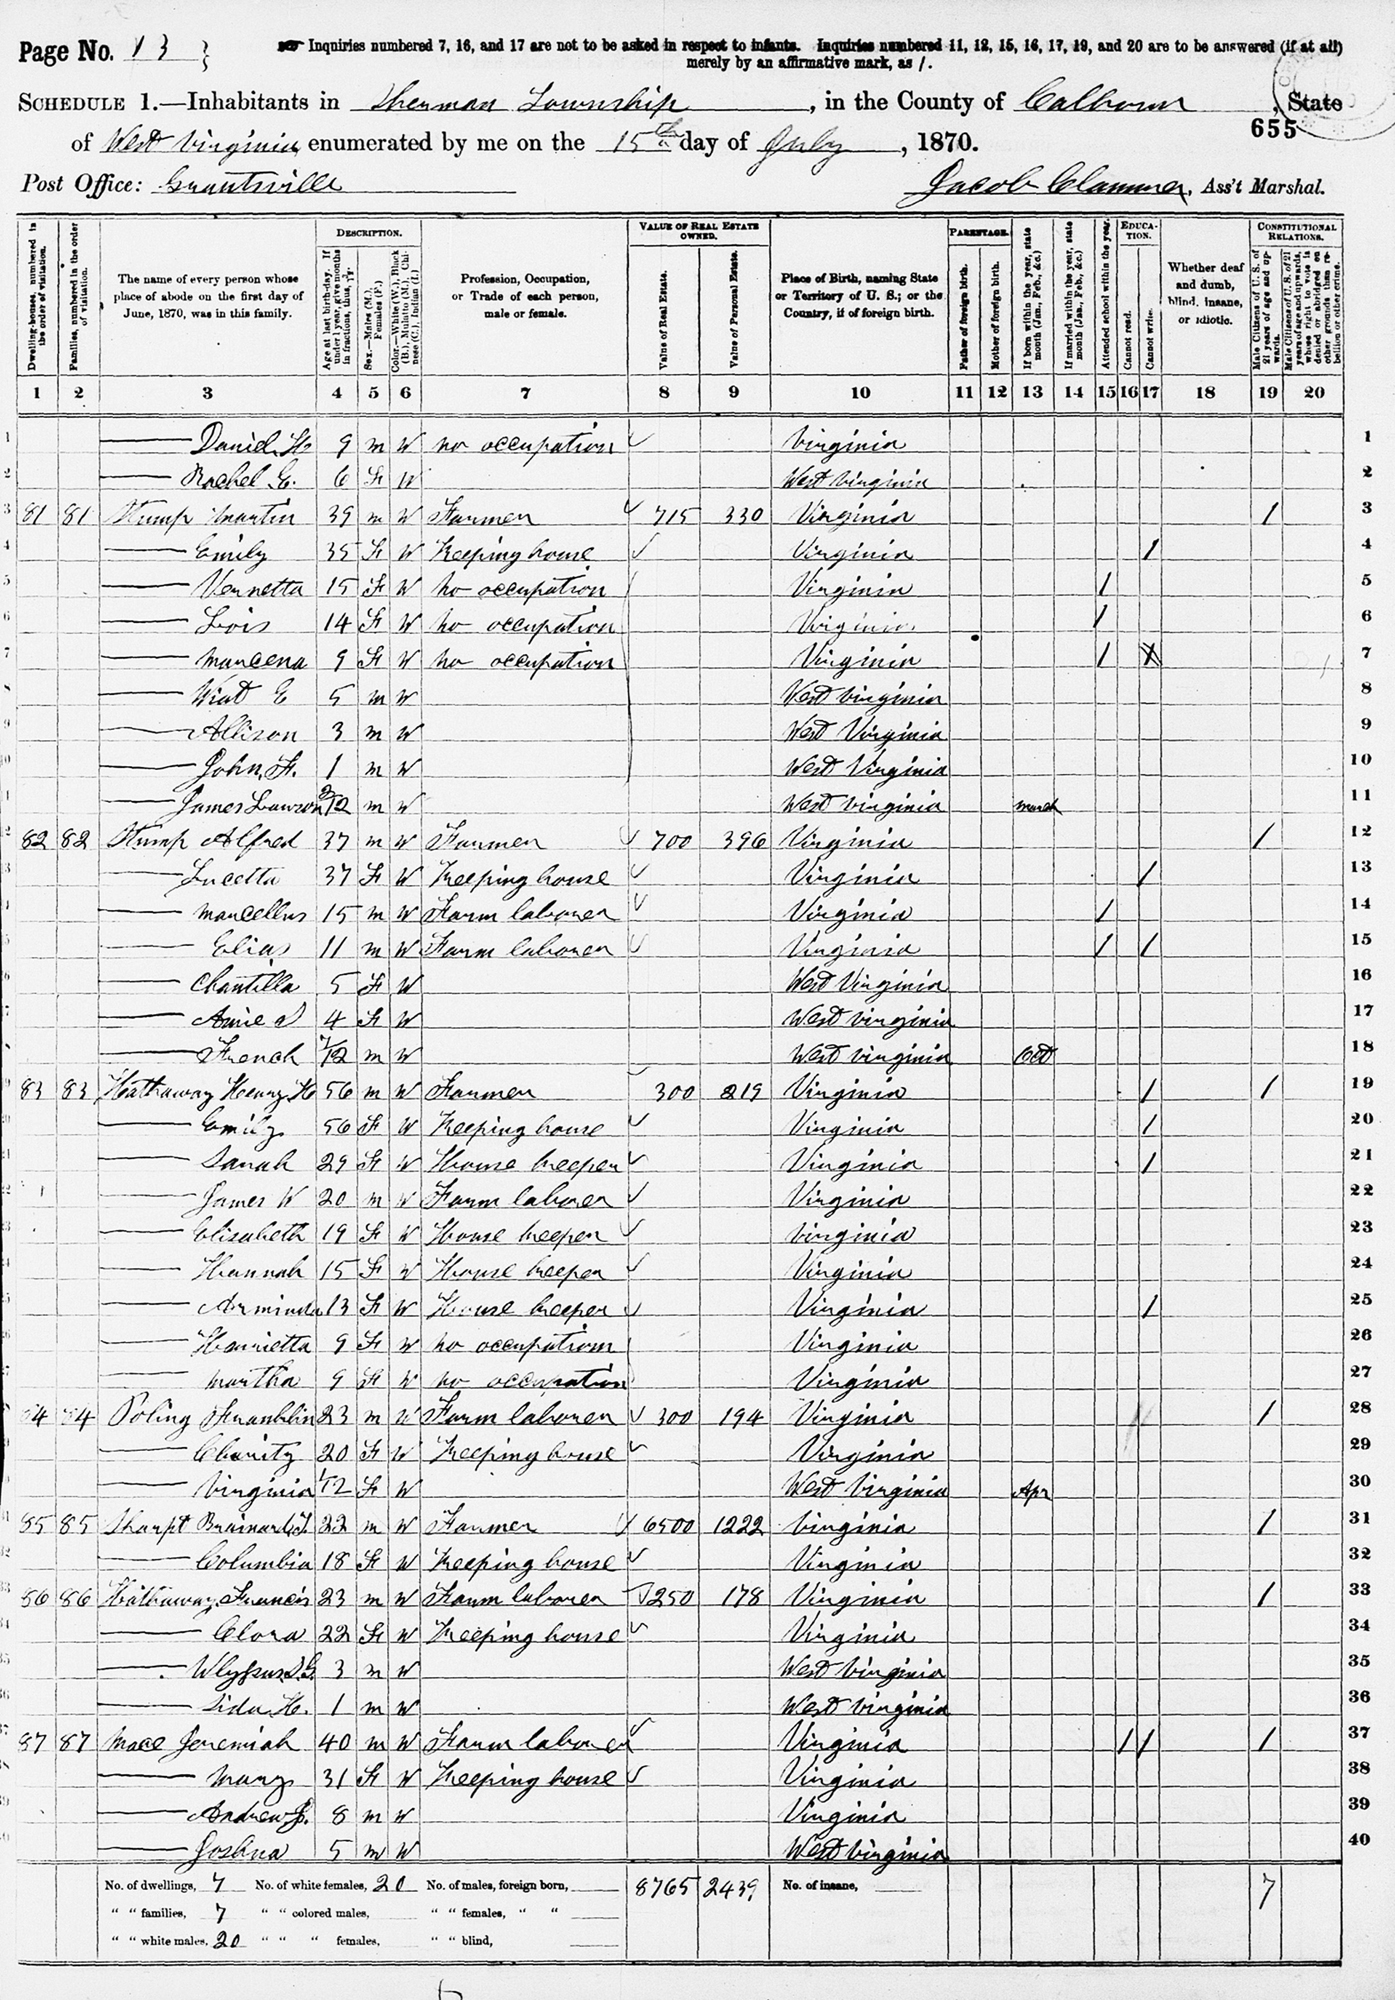 Page No. 13
Inquiries numbered 7, 16, and 17 are not to be asked in respect to infants. Inquiries numbered 11, 12, 15, 16, 17, 19, and 20 are to be answered (if at all)
merely by an affirmative mark, as /.
SCHEDULE 1.—Inhabitants in Sherman Township, in the County of Calhoun, State
655
of West Virginia, enumerated by me on the 15th day of July, 1870.
Post Office: Grantsville Jacob, Ass't Marshal.
Dwelling-houses, numbered in the order of visitation.
Families, numbered in the order of visitation.
The name of every person whose place of abode on the first day of June, 1870, was in this family.
DESCRIPTION.
Age at last birth-day. If under 1 year, give months in fractions, thus, 3/12.
Sex.—Males (M.), Females (F.)
Color.—White (W.), Black (B.), Mulatto (M.), Chinese (C.), Indian (I.)
Profession, Occupation, or Trade of each person, male or female.
VALUE OF REAL ESTATE OWNED.
Value of Real Estate.
Value of Personal Estate.
Place of Birth, naming State or Territory of U. S.; or the Country, if of foreign birth.
PARENTAGE.
Father of foreign birth.
Mother of foreign birth.
If born within the year, state month (Jan., Feb., &c.)
If married within the year, state month (Jan., Feb., &c.)
Attended school within the year.
EDUCATION.
Cannot read.
Cannot write.
Whether deaf and dumb, blind, insane, or idiotic.
CONSTITUTIONAL RELATIONS.
Male Citizens of U. S. of 21 years of age and upwards.
Male Citizens of U. S. of 21 years of age and upwards, whose right to vote is denied or abridged on other grounds than rebellion or other crime.
1 2 3 4 5 6 7 8 9 10 11 12 13 14 15 16 17 18 19 20
1 — Daniel H 9 m W no occupation ✓ Virginia 1
2 — Rachel E. 6 F W West Virginia 2
3 81 81 Stump Martin 39 m W Farmer ✓ 715 330 Virginia / 3
4 — Emily 35 F W Keeping house ✓ Virginia / 4
5 — Vernetta 15 F W no occupation Virginia / 5
6 — Lois 14 F W no occupation Virginia / 6
7 — Marcena 9 F W no occupation Virginia / X 7
8 — Wiat E 5 m W West Virginia 8
9 — Allison 3 m W West Virginia 9
10 — John F. 1 m W West Virginia 10
11 — James Lawson 3/12 m W West Virginia march 11
12 82 82 Stump Alfred 37 m W Farmer ✓ 700 396 Virginia / 12
13 — Lucetta 37 F W Keeping house ✓ Virginia / 13
14 — Marcellus 15 m W Farm laborer ✓ Virginia / 14
15 — Elias 11 m W Farm laborer ✓ Virginia / / 15
16 — Chantilla 5 F W West Virginia 16
17 — 4 F W West Virginia 17
18 — French 7/12 m W West Virginia Oct 18
19 83 83 Hathaway Henry H 56 m W Farmer 300 219 Virginia / / 19
20 — Emily 56 F W Keeping house ✓ Virginia / 20
21 — Sarah 29 F W House keeper ✓ Virginia / 21
22 — James W 20 m W Farm laborer ✓ Virginia 22
23 — Elisabeth 19 F W House keeper ✓ Virginia 23
24 — Hannah 15 F W House keeper ✓ Virginia 24
25 — Arminda 13 F W House keeper ✓ Virginia / 25
26 — Harrietta 9 F W no occupation Virginia 26
27 — Martha 9 F W no occupation Virginia 27
28 84 84 Poling Franklin 23 m W Farm laborer ✓ 300 194 Virginia / 28
29 — Charity 20 F W Keeping house ✓ Virginia 29
30 — Virginia 1/12 F W West Virginia Apr 30
31 85 85 22 m W Farmer 6500 1222 Virginia / 31
32 — Columbia 18 F W Keeping house ✓ Virginia 32
33 86 86 Hathaway Francis 23 m W Farm laborer ✓ 250 178 Virginia / 33
34 — Clora 22 F W Keeping house ✓ Virginia 34
35 — S. G. 3 m W West Virginia 35
36 — H. 1 m W West Virginia 36
37 87 87 Mace Jeremiah 40 m W Farm laborer ✓ Virginia / / / 37
38 — Mary 31 F W Keeping house ✓ Virginia 38
39 — Andrew J. 8 m W Virginia 39
40 — Joshua 5 m W West Virginia 40
No. of dwellings, 7 No. of white females, 20 No. of males, foreign born, 8765 2439 No. of insane, 7
" " families, 7 " " colored males, " " females, " "
" " white males, 20 " " " females, " " blind,